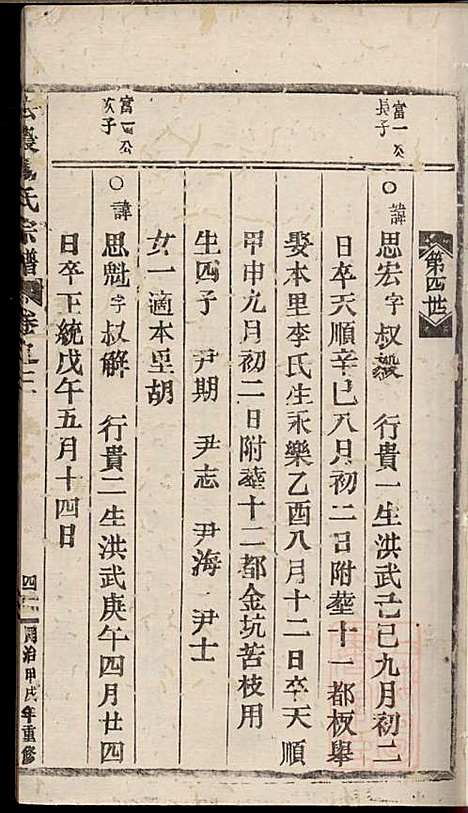 第四世
富一公
長子
○諱思宏字叔毅 行貴一生洪武己巳九月初二
日卒天順辛巳八月初二日附塟十一都板舉
娶本里李氏生永樂乙酉八月十二日卒天順
甲申九月初二日附塟十二都金坑苦枝用
生四子 尹期 尹志 尹海 尹士
女一適本里胡
富一公
次子
○諱思魁字叔解 行貴二生洪武庚午四月廿四
日卒正統戊午五月十四日
氏宗譜
卷之二
四
同治甲戌年重修